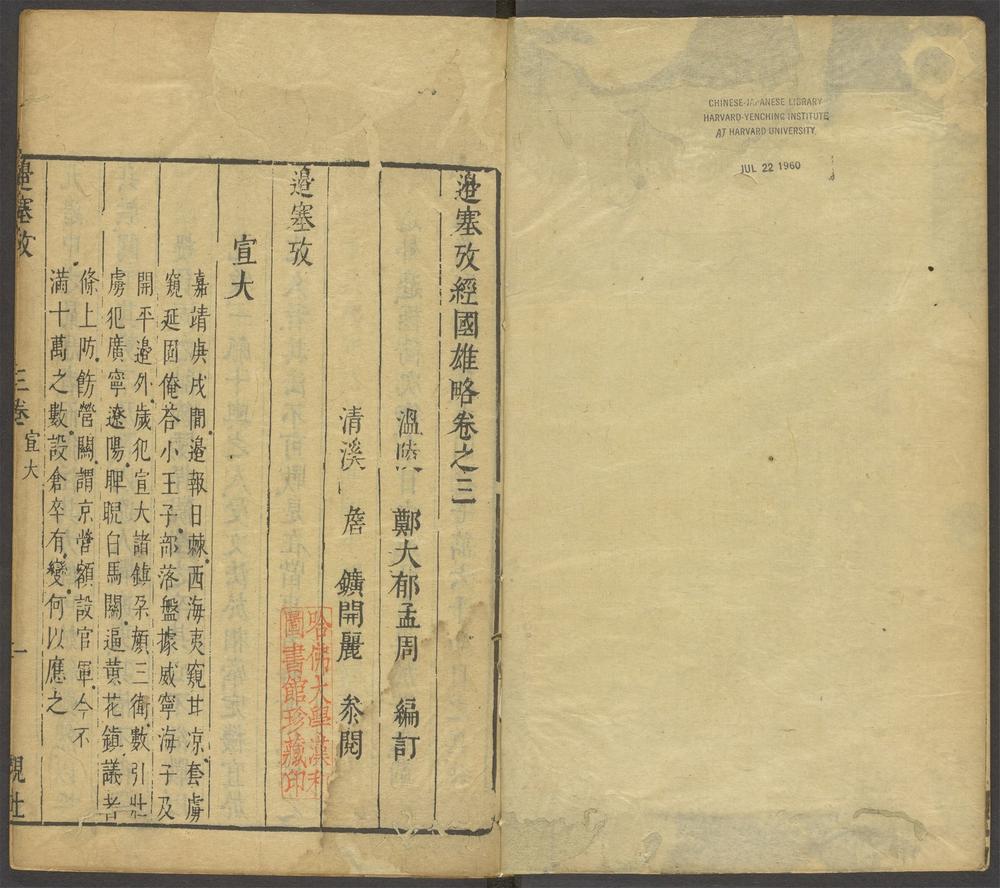 CHINESE-JAPANESE LIBRARY
HARVARD-YENCHING INSTITUTE
AT HARVARD UNIVERSITY
JUL 22 1960
邉塞攷經國雄略卷之三
溫陵 鄭大郁孟周 編訂
清溪 詹 鑛開麗 叅閱
邉塞攷
宣大
嘉靖庚戌間邉報日棘西海夷窺甘凉套虜
窺延固俺荅小王子部落盤據威寧海子及
開平邉外歲犯宣大諸鎮朶顏三衛數引壯
虜犯廣寧遼陽睥睨白馬關逼黃花鎮議者
條上防飭營關謂京營額設官軍今不
滿十萬之數設倉卒有變何以應之
邉塞攷
三卷 宣大
一
觀社
哈佛大學漢和
圖書館珍藏印